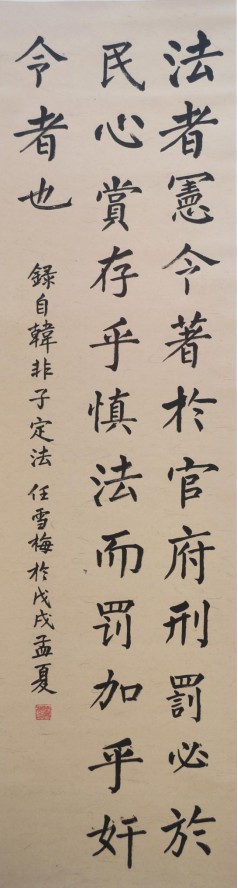 法者憲令著於官府刑罰必於
民心賞存乎慎法而罰加乎奸
令者也
錄自韓非子定法 任雪梅於戊戌孟夏